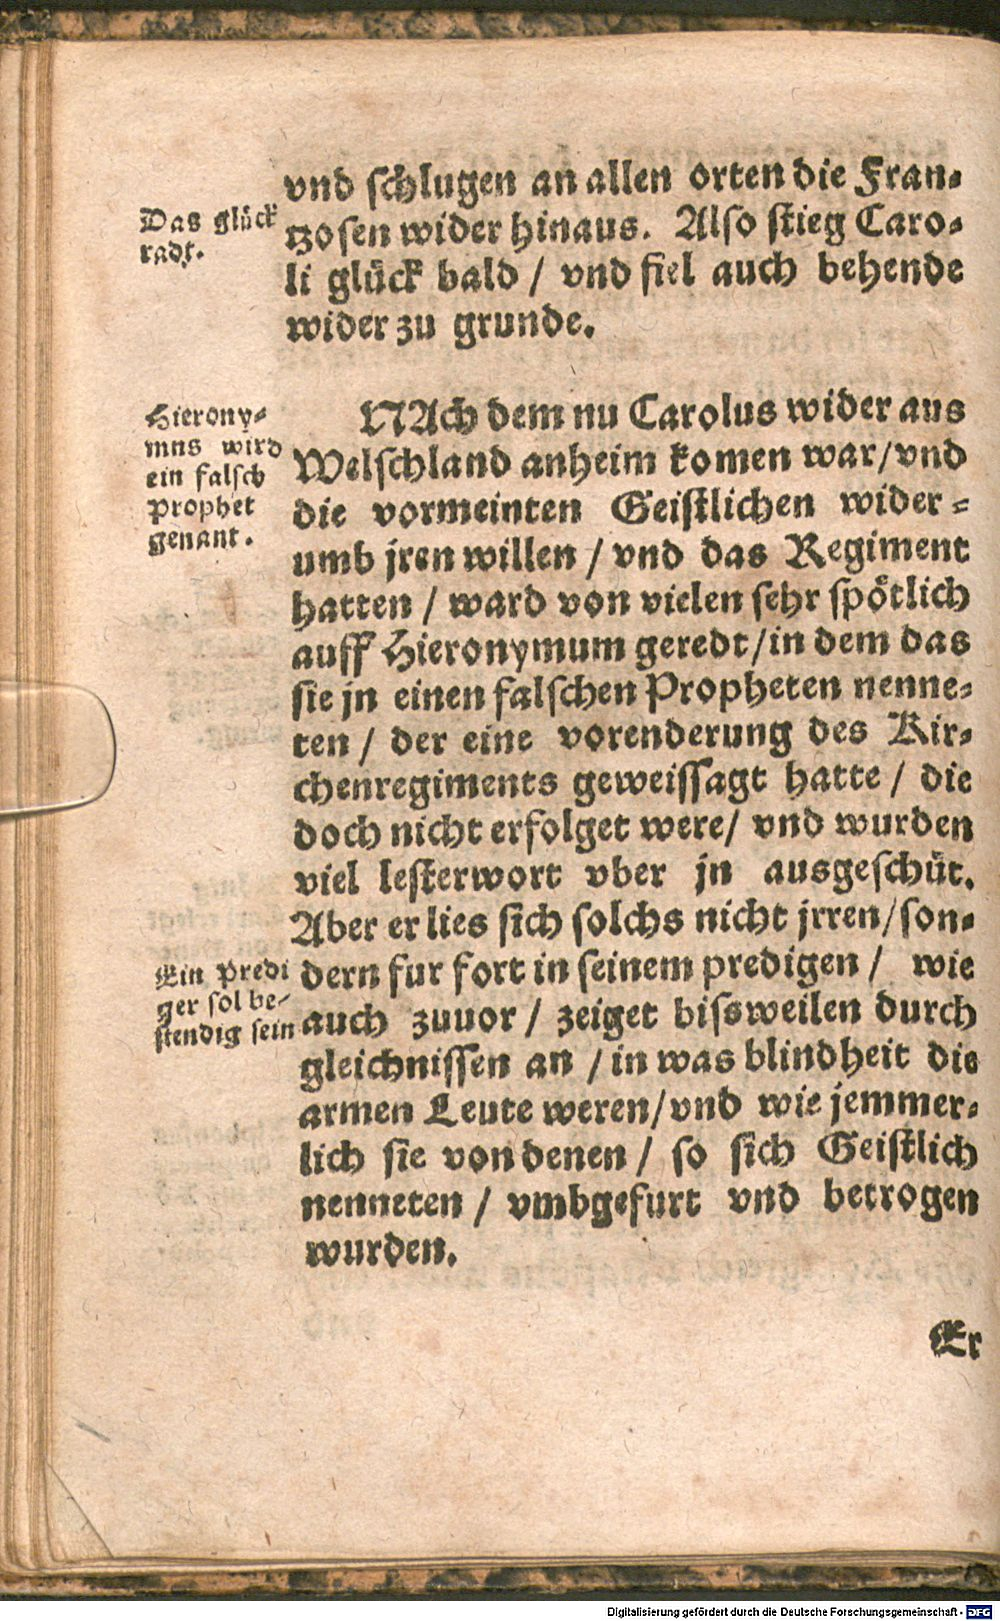 vnd schlugen an allen orten die Fran-
tzosen wider hinaus. Also stieg Caro-
li glück bald / vnd fiel auch behende
wider zu grunde.
Das glück
radt.
NAch dem nu Carolus wider aus
Welschland anheim komen war/ vnd
die vormeinten Geistlichen wider-
umb jren willen / vnd das Regiment
hatten / ward von vielen sehr spötlich
auff Hieronymum geredt/ in dem das
sie jn einen falschen Propheten nenne-
ten / der eine vorenderung des Kir-
chenregiments geweissagt hatte / die
doch nicht erfolget were/ vnd wurden
viel lesterwort vber jn ausgeschüt.
Aber er lies sich solchs nicht jrren/ son-
dern fur fort in seinem predigen / wie
auch zuuor / zeiget bissweilen durch
gleichnissen an / in was blindheit die
armen Leute weren/ vnd wie jemmer-
lich sie von denen / so sich Geistlich
nenneten / vmbgefurt vnd betrogen
wurden.
Hierony-
mns wird
ein falsch
prophet
genant.
Ein Predi
ger sol be-
stendig sein
Er
Digitalisierung gefördert durch die Deutsche Forschungsgemeinschaft - DFG